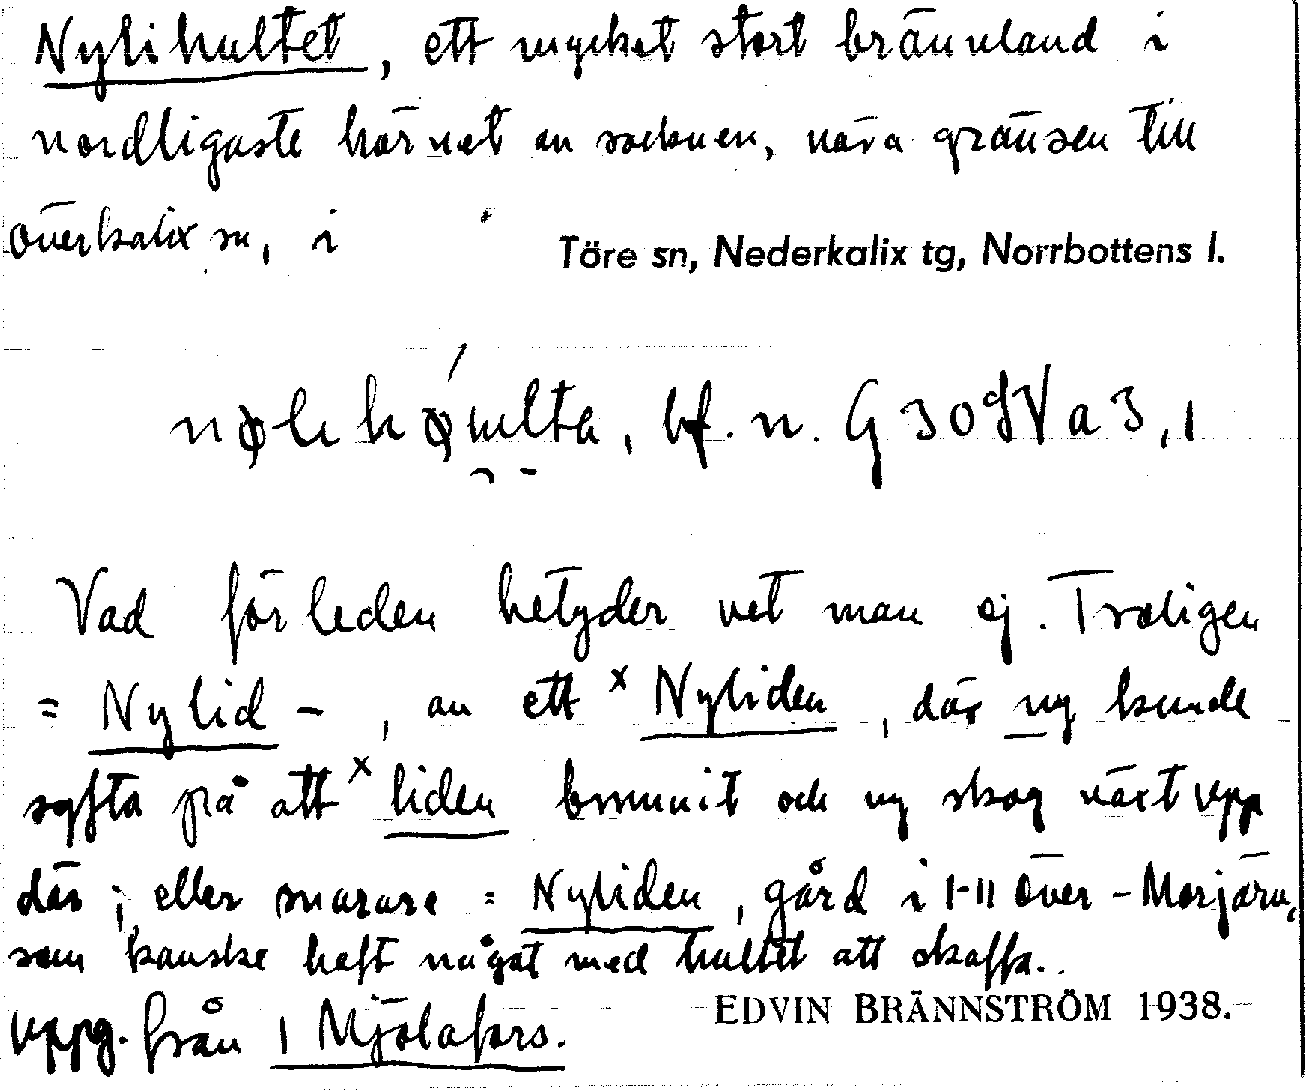 Nylihultet, ett mycket stort brännland i
nordligaste hörnet av socknen, nära gränsen till
Överkalix sn, i
Töre sn, Nederkalix tg, Norrbottens l.
bf. n.
Vad förleden betyder vet man ej. Troligen
= Nylid -, av ett x Nyliden, där ny kunde
syfta på att x liden brunnit och ny skog växt upp
där; eller snarare = Nyliden, gård i 1-11 Över-Morjärv,
som kanske haft något med hultet att skaffa.
Uppg. från 1 Mjölafors.
EDVIN BRÄNNSTRÖM 1938.